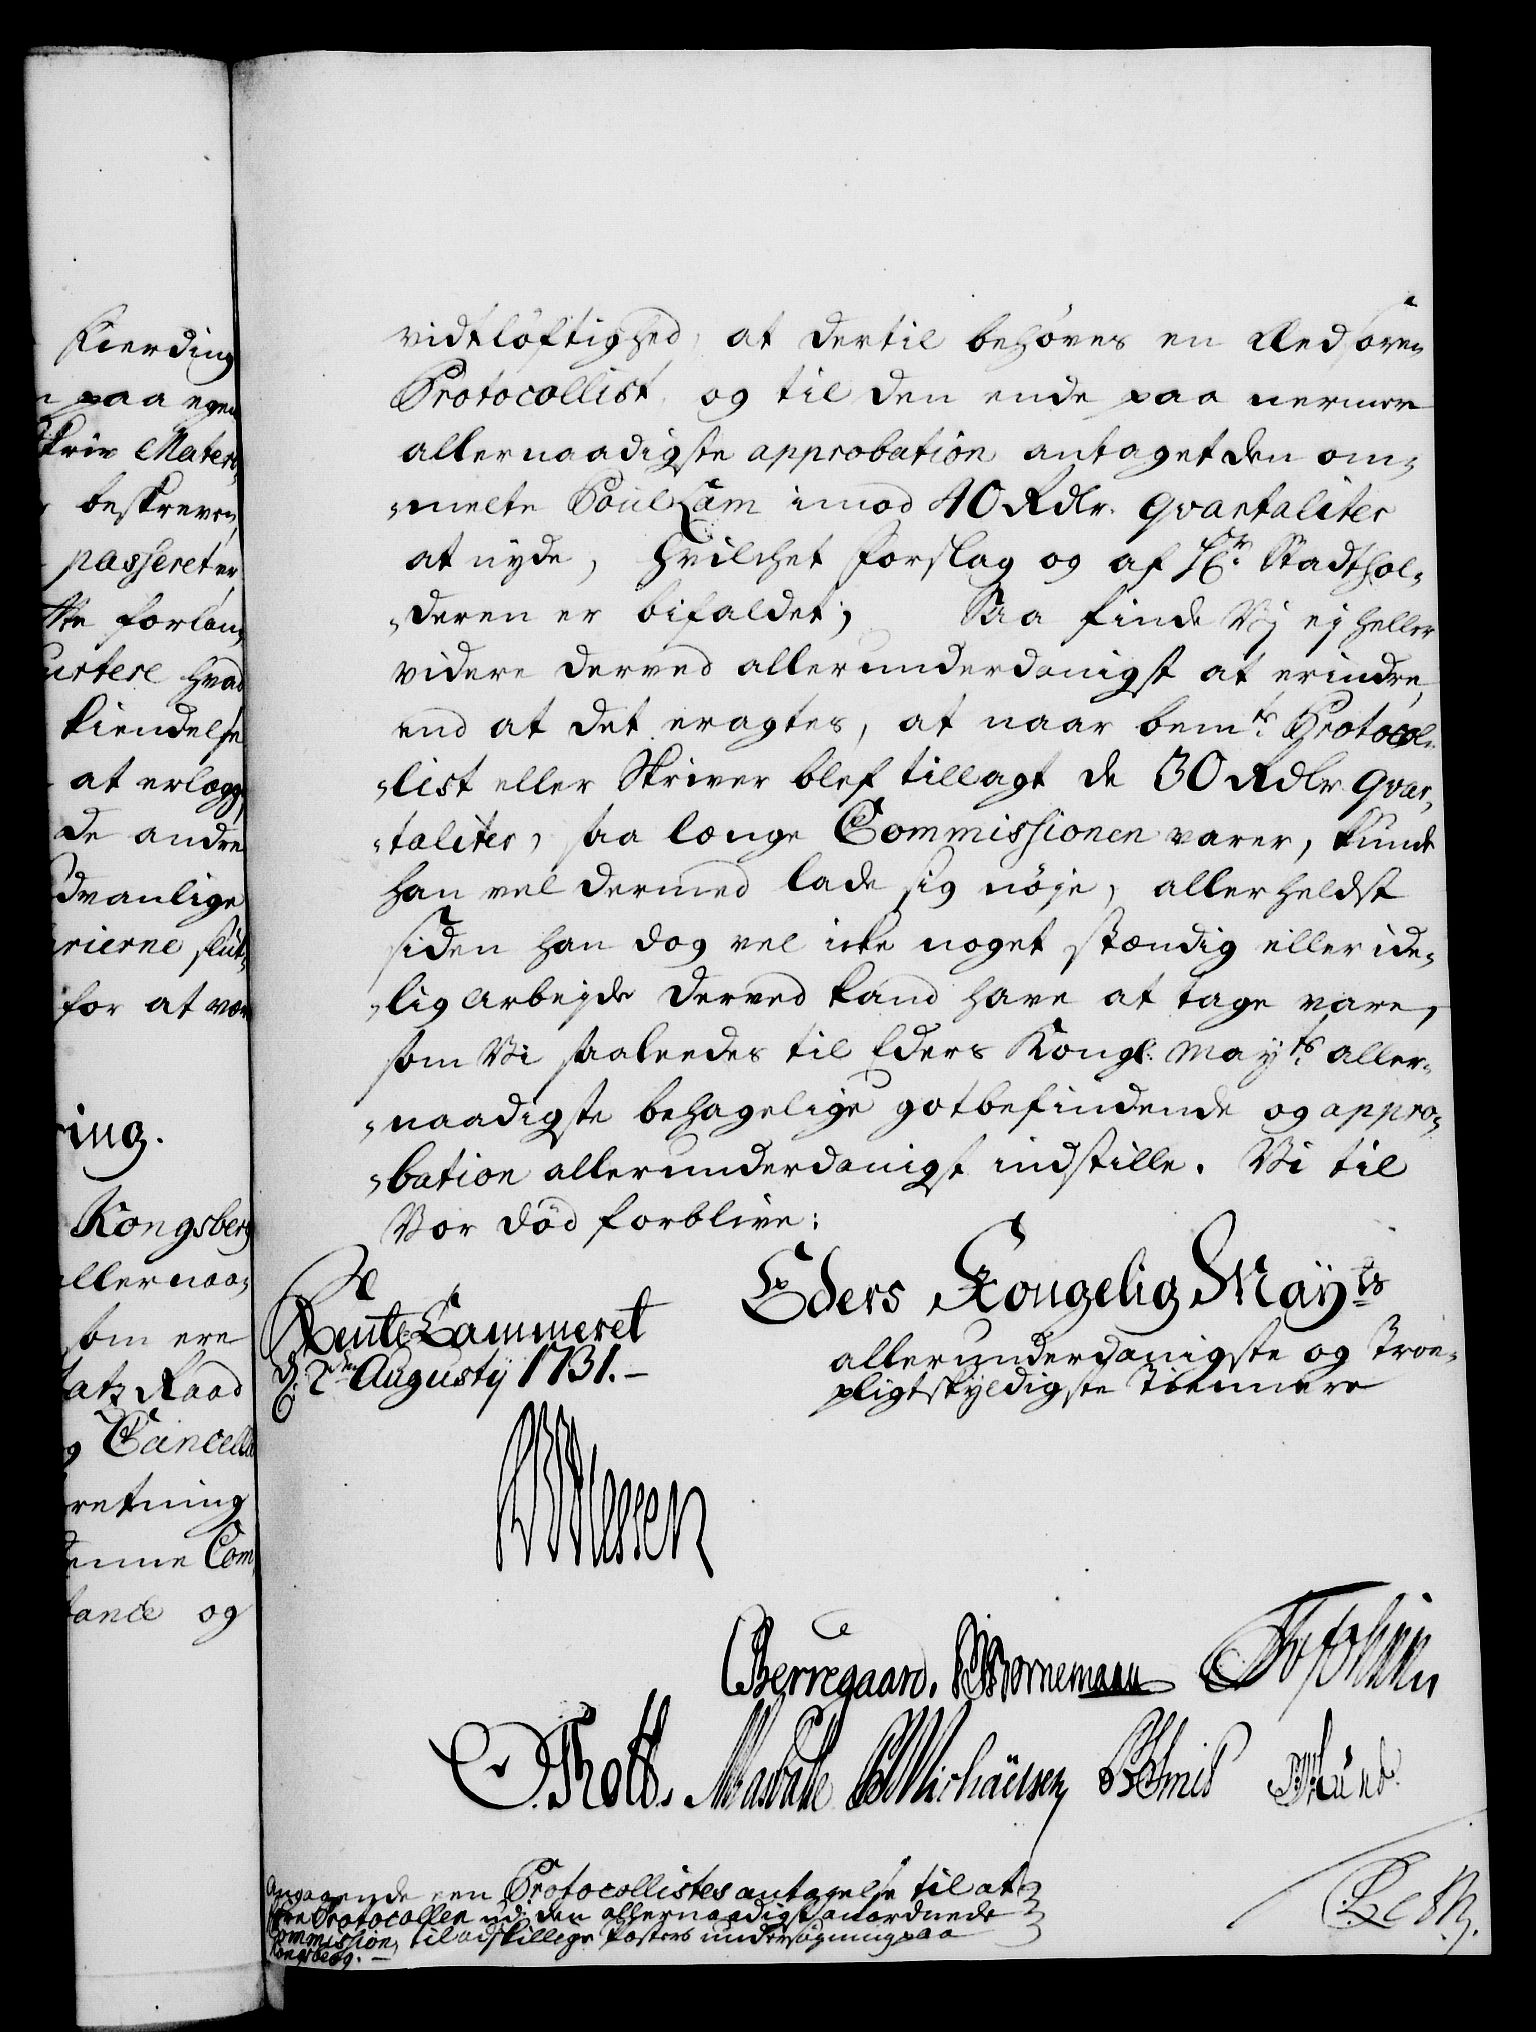 Kierding
paa egen
Skriv Mater,,
beskreven,
passeret er
forlan,,
urtere hvad
kiendelse
at erlegg,
de andre
dvanlige
rierne slut,,
for at vær
ring.
Kongsberg
allernaa,,
som ere
tatz Raad
og Cancelli
retning
denne Com,,
tance og
vidtløftighed, at dertil behøves en Edsoren
Protocollist, og til den ende paa nermere
allernaadigste approbation antaget den om,,
,,melte Poul Lam imod 40 Rdlr. qvartaliter
at nyde, hvilchet forslag og af Hr. Stadthol,,
,,deren er bifaldet; Saa finde Vj ej heller
videre derved allerunderdanigst at erindre,
end at det eragtes, at naar bemte. Protocol,,
,,list eller Skriver blef tillagt de 30 Rdlr qvar,,
,,taliter, saa længe Commissionen varer, kunde
han vel dermed lade sig nøje, allerheldst
siden han dog vel icke noget stændig eller ide,,
,,lig arbejde derved kand have at tage vare,
som Vi saaleedes til Eders Kongl: Mayts aller,,
,,naadigste behagelige gotbefindende og appro,,
,,bation allerunderdanigst indstille. Vi til
Vor död forblive:
Eders Kongelig Mayts
allerunderdanigste og Troe,,
pligtskyldigste Tiennere
Rente Cammeret
d: 2den Augusty 1731.
Berregaard. Bornemann
Thott.
Angaaende een Protocollistes antagelse til at
føre Protocollen udj den allernaadigst anordnede
Commission, til adskillige Posters undersøgning paa
Kongsberg.